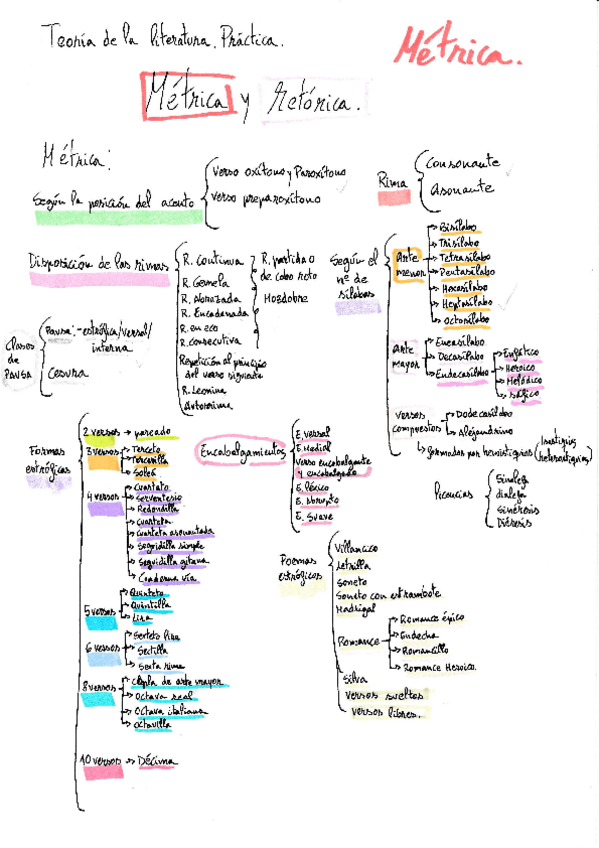 Teoría de la literatura. Práctica.
Métrica.
Métrica y Retórica.
Métrica:
Según la posición del acento
verso oxítono y Paroxítono
verso proparoxítono
Rima
Consonante
Asonante
Disposición de las rimas
R. continua
R. Gemela
R. Abrazada
R. Encadenada
R. en eco
R. consecutiva
Repetición al principio
del verso siguiente
R. Leonina
Autorrima
R. partida o
de cabo roto
Según el
nº de
sílabas
Arte
menor
Bisílabo
Trisílabo
Tetrasílabo
Pentasílabo
Hexasílabo
Heptasílabo
Octosílabo
Arte
mayor
Eneasílabo
Decasílabo
Endecasílabo
Enfático
Heroico
Melódico
Sáfico
versos
compuestos
Dodecasílabo
Alejandrino
formados por hemistiquios
Licencias
Sinalefa
dialefa
Sinéresis
Diéresis
Clases
de
PAUSA
Pausa: -estrófica/versal/
interna
Cesura
Formas
estróficas
2 versos → pareado
3 versos
Terceto
Tercerilla
Soleá
4 versos
Cuarteto
Serventesio
Redondilla
Cuarteta
Cuarteta asonantada
Seguidilla simple
Seguidilla gitana
Cuaderna vía
5 versos
Quinteto
Quintilla
Lira
6 versos
Sexteto lira
Sextilla
Sexta rima
8 versos
Copla de arte mayor
Octava real
Octava italiana
Octavilla
10 versos → Décima
Encabalgamientos
E. versal
E. Medial
verso encabalgante
y encabalgado
E. léxico
E. Abrupto
E. Suave
Formas
estróficas
Villancico
Letrilla
Soneto
Soneto con estrambote
Madrigal
Romance
Romance épico
Endecha
Romancillo
Romance Heroico.
Silva
versos sueltos
versos libres.